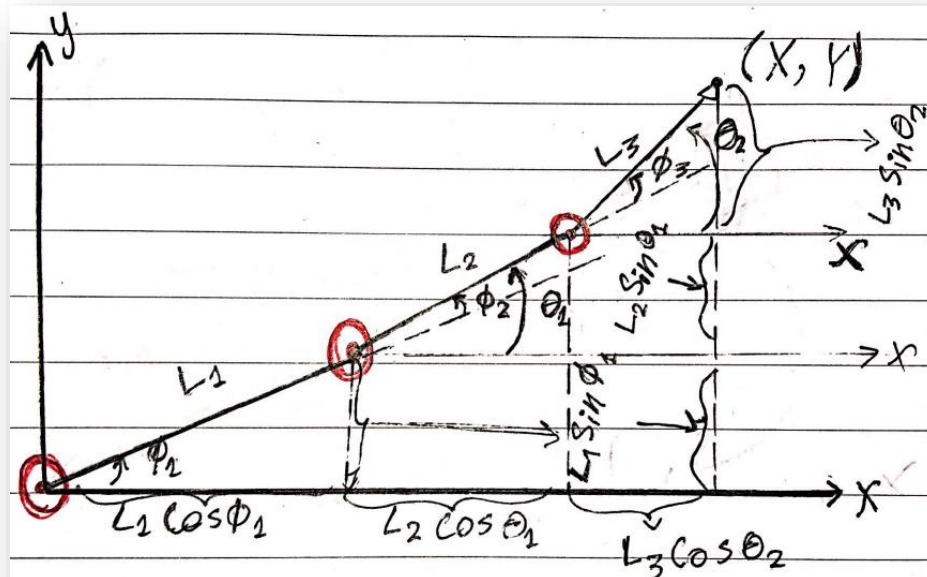 y
(X, Y)
L3
φ3
θ2
L3 Sinθ2
X
L2
φ2
θ1
L2 Sinθ1
X
L1
φ1
L1 Sinφ1
X
L1 Cosφ1
L2 Cosθ1
L3 Cosθ2